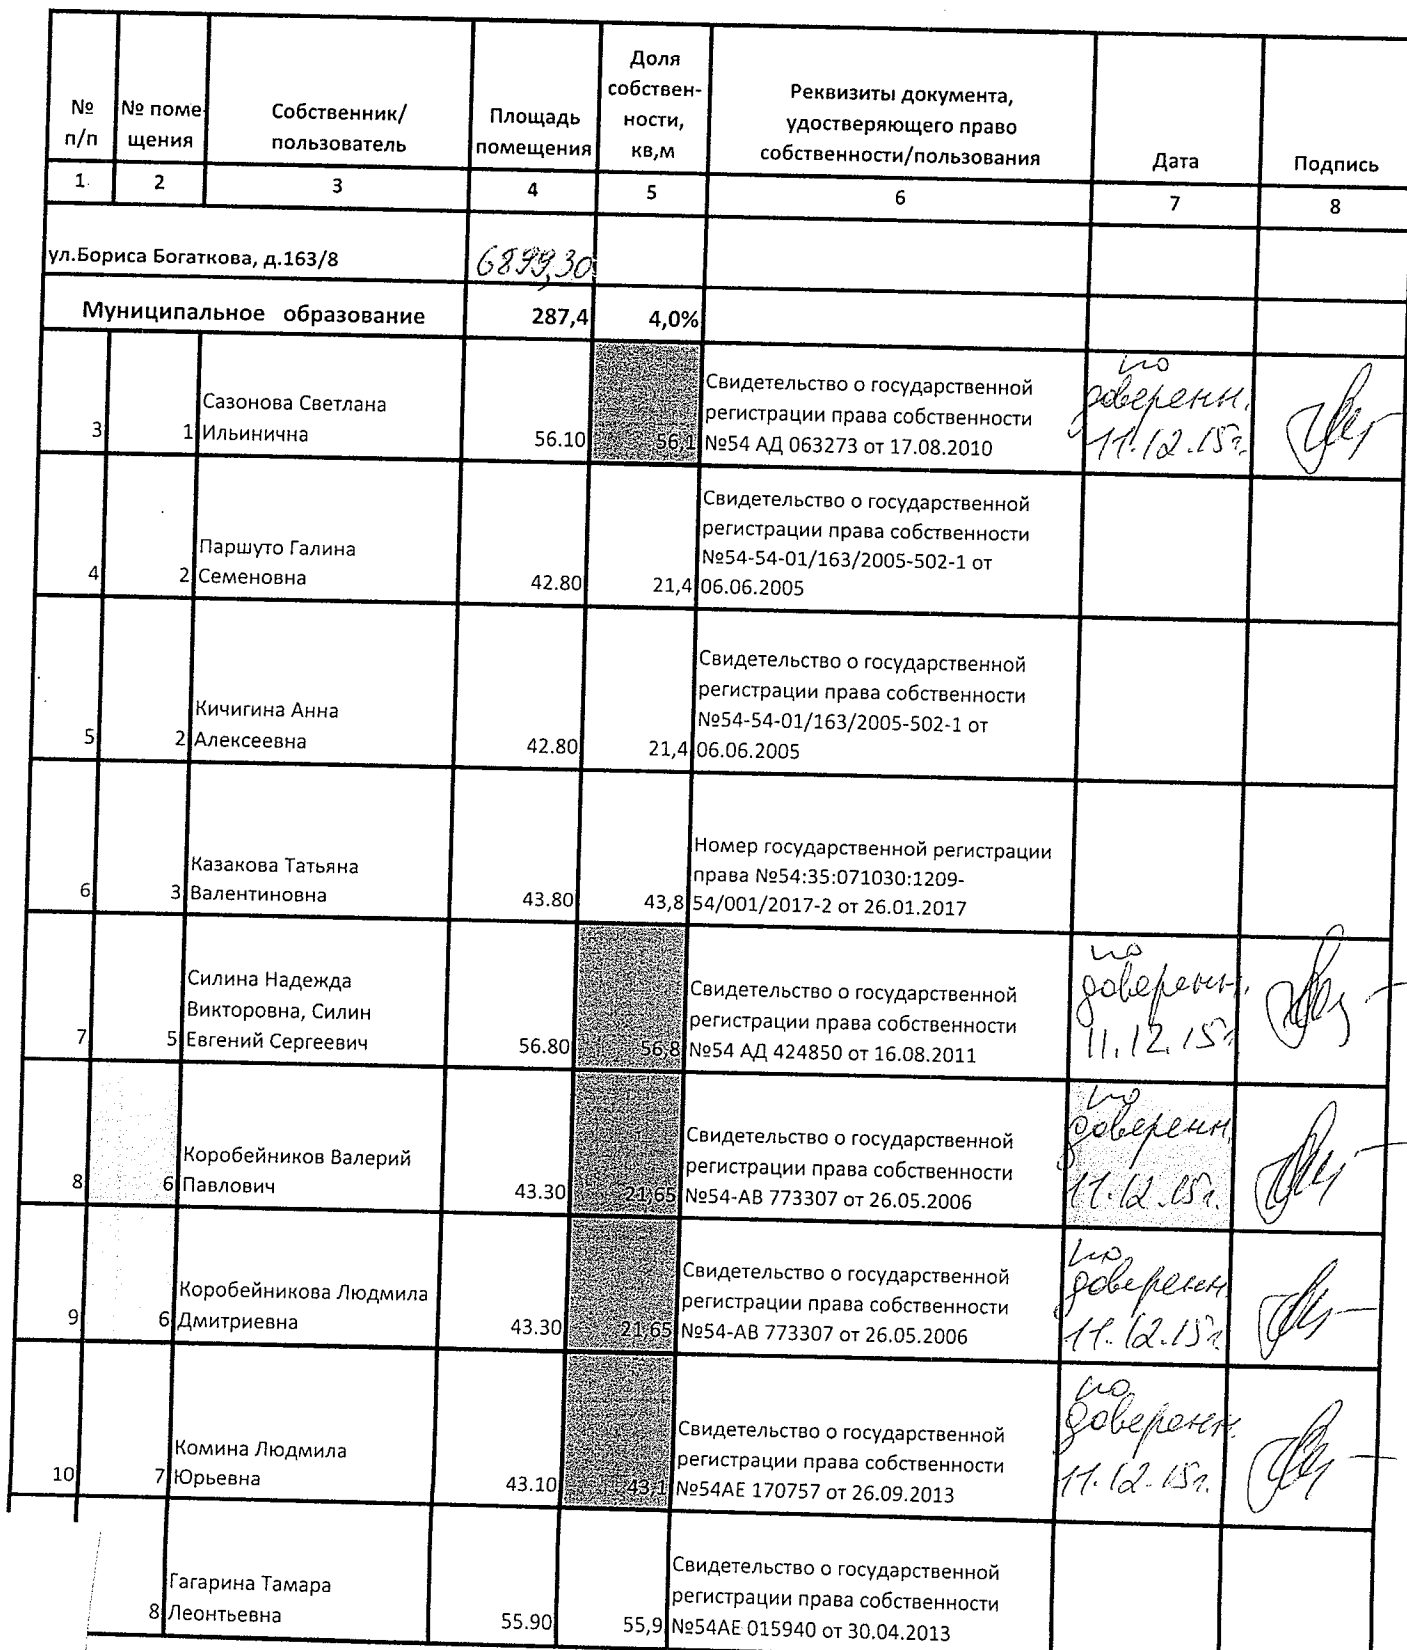 № п/п
№ поме-щения
Собственник/ пользователь
Площадь помещения
Доля собствен-ности, кв,м
Реквизиты документа, удостверяющего право собственности/пользования
Дата
Подпись
1. 2 3 4 5 6 7 8
ул.Бориса Богаткова, д.163/8 6899,30
Муниципальное образование 287,4 4,0%
Сазонова Светлана
3 1 Ильинична 56.10 56,1
Свидетельство о государственной
регистрации права собственности
№54 АД 063273 от 17.08.2010
по
доверенн.
11.12.15г.
Паршуто Галина
4 2 Семеновна 42.80 21,4
Свидетельство о государственной
регистрации права собственности
№54-54-01/163/2005-502-1 от
06.06.2005
Кичигина Анна
5 2 Алексеевна 42.80 21,4
Свидетельство о государственной
регистрации права собственности
№54-54-01/163/2005-502-1 от
06.06.2005
Казакова Татьяна
6 3 Валентиновна 43.80 43,8
Номер государственной регистрации
права №54:35:071030:1209-
54/001/2017-2 от 26.01.2017
Силина Надежда
Викторовна, Силин
7 5 Евгений Сергеевич 56.80 56,8
Свидетельство о государственной
регистрации права собственности
№54 АД 424850 от 16.08.2011
по
доверенн.
11.12.15г
Коробейников Валерий
8 6 Павлович 43.30 21,65
Свидетельство о государственной
регистрации права собственности
№54-АВ 773307 от 26.05.2006
по
доверенн.
11.12.15г.
Коробейникова Людмила
9 6 Дмитриевна 43.30 21,65
Свидетельство о государственной
регистрации права собственности
№54-АВ 773307 от 26.05.2006
по
доверенн
11.12.15г
Комина Людмила
10 7 Юрьевна 43.10 43,1
Свидетельство о государственной
регистрации права собственности
№54АЕ 170757 от 26.09.2013
по
доверенн.
11.12.15г.
Гагарина Тамара
8 Леонтьевна 55.90 55,9
Свидетельство о государственной
регистрации права собственности
№54АЕ 015940 от 30.04.2013